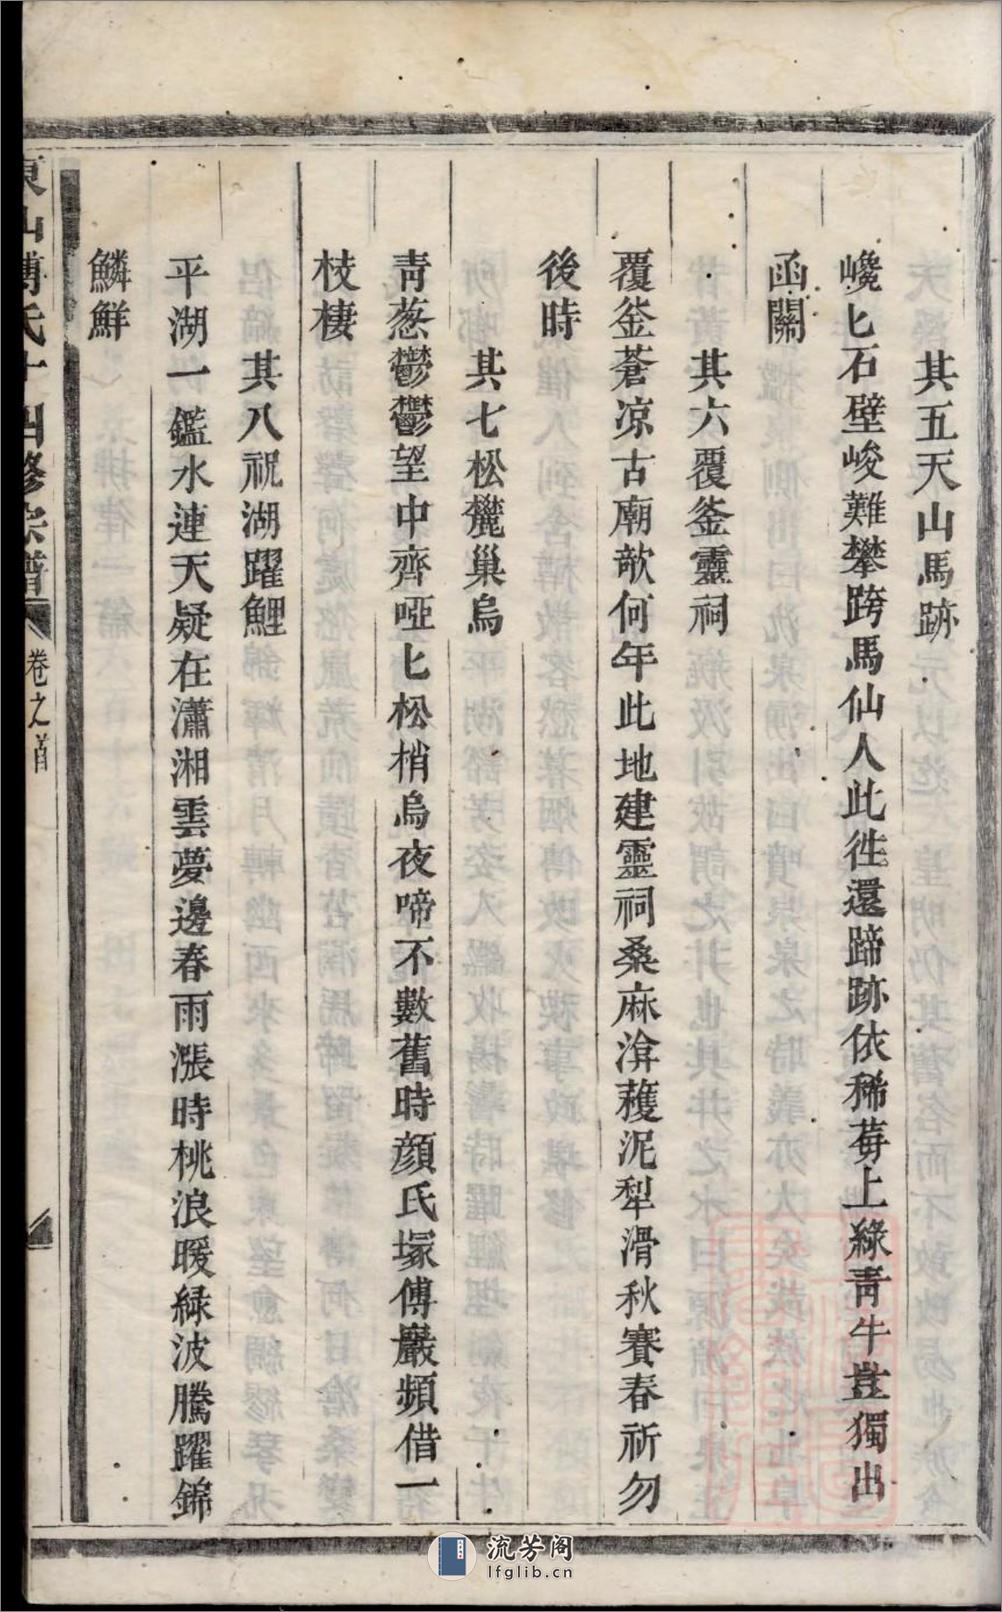 其五天山馬跡
巉匕石壁峻難攀跨馬仙人此徃還蹄跡依稀莓上綠青牛豈獨出
函關
其六覆釜靈祠
覆釜蒼凉古廟欹何年此地建靈祠桑麻渰䕶泥犁滑秋賽春祈勿
後時
其七松麓巢烏
靑葱鬱鬱望中齊啞匕松梢烏夜啼不數舊時顔氏塚傅巖頻借一
枝棲
其八祝湖躍鯉
平湖一鑑水連天疑在瀟湘雲夢邊春雨漲時桃浪暖緑波騰躍錦
鱗鮮
東山傅氏十四修宗譜 卷之首
流芳阁
lfglib.cn